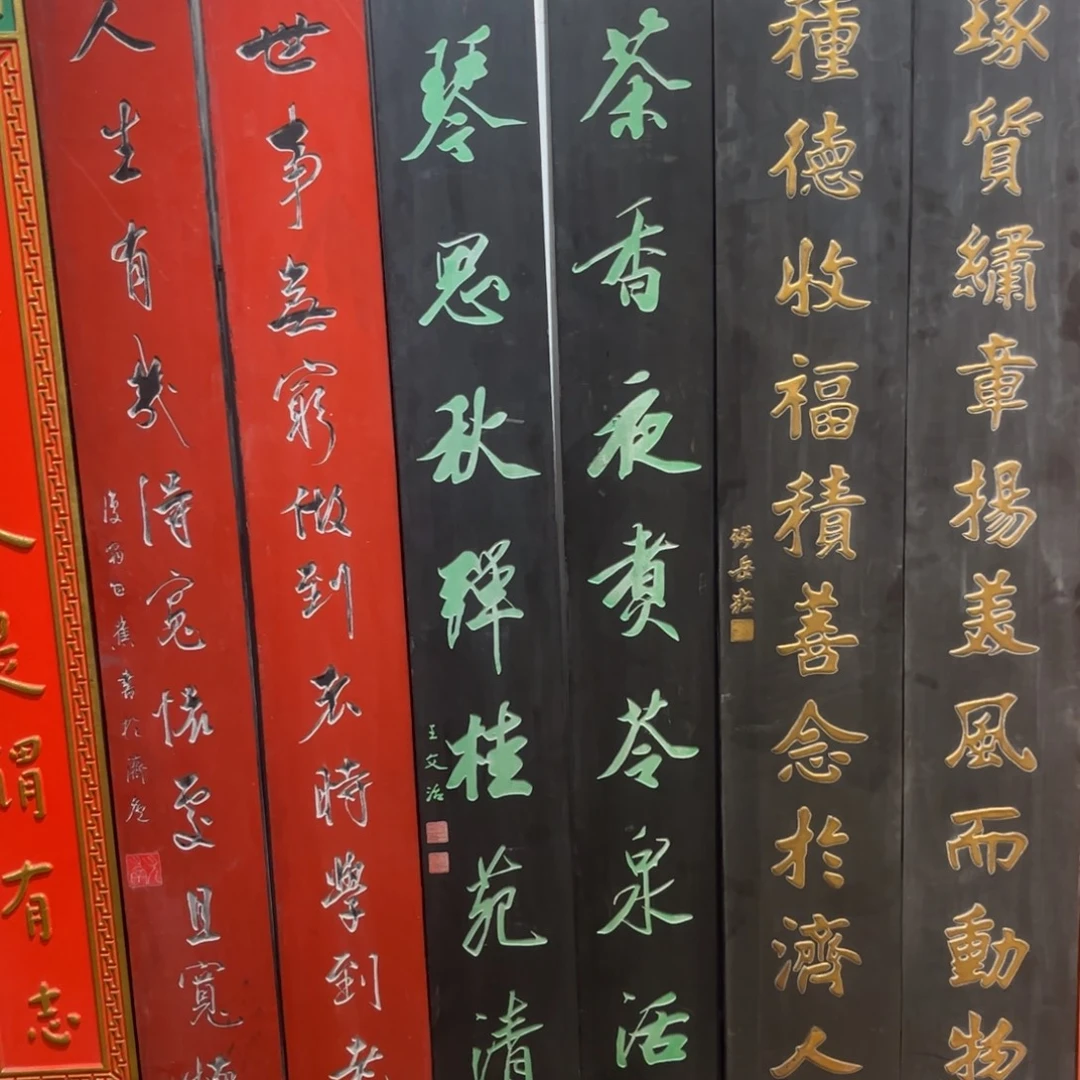 琢質繡章揚美風而動物
種德收福積善念於濟人
張岳崧
茶香夜煑苓泉活
琴思秋彈桂苑清
王文治
世事無窮做到老時學到老
人生有幾得寬懷處且寬懷
白蕉書於
是謂有志